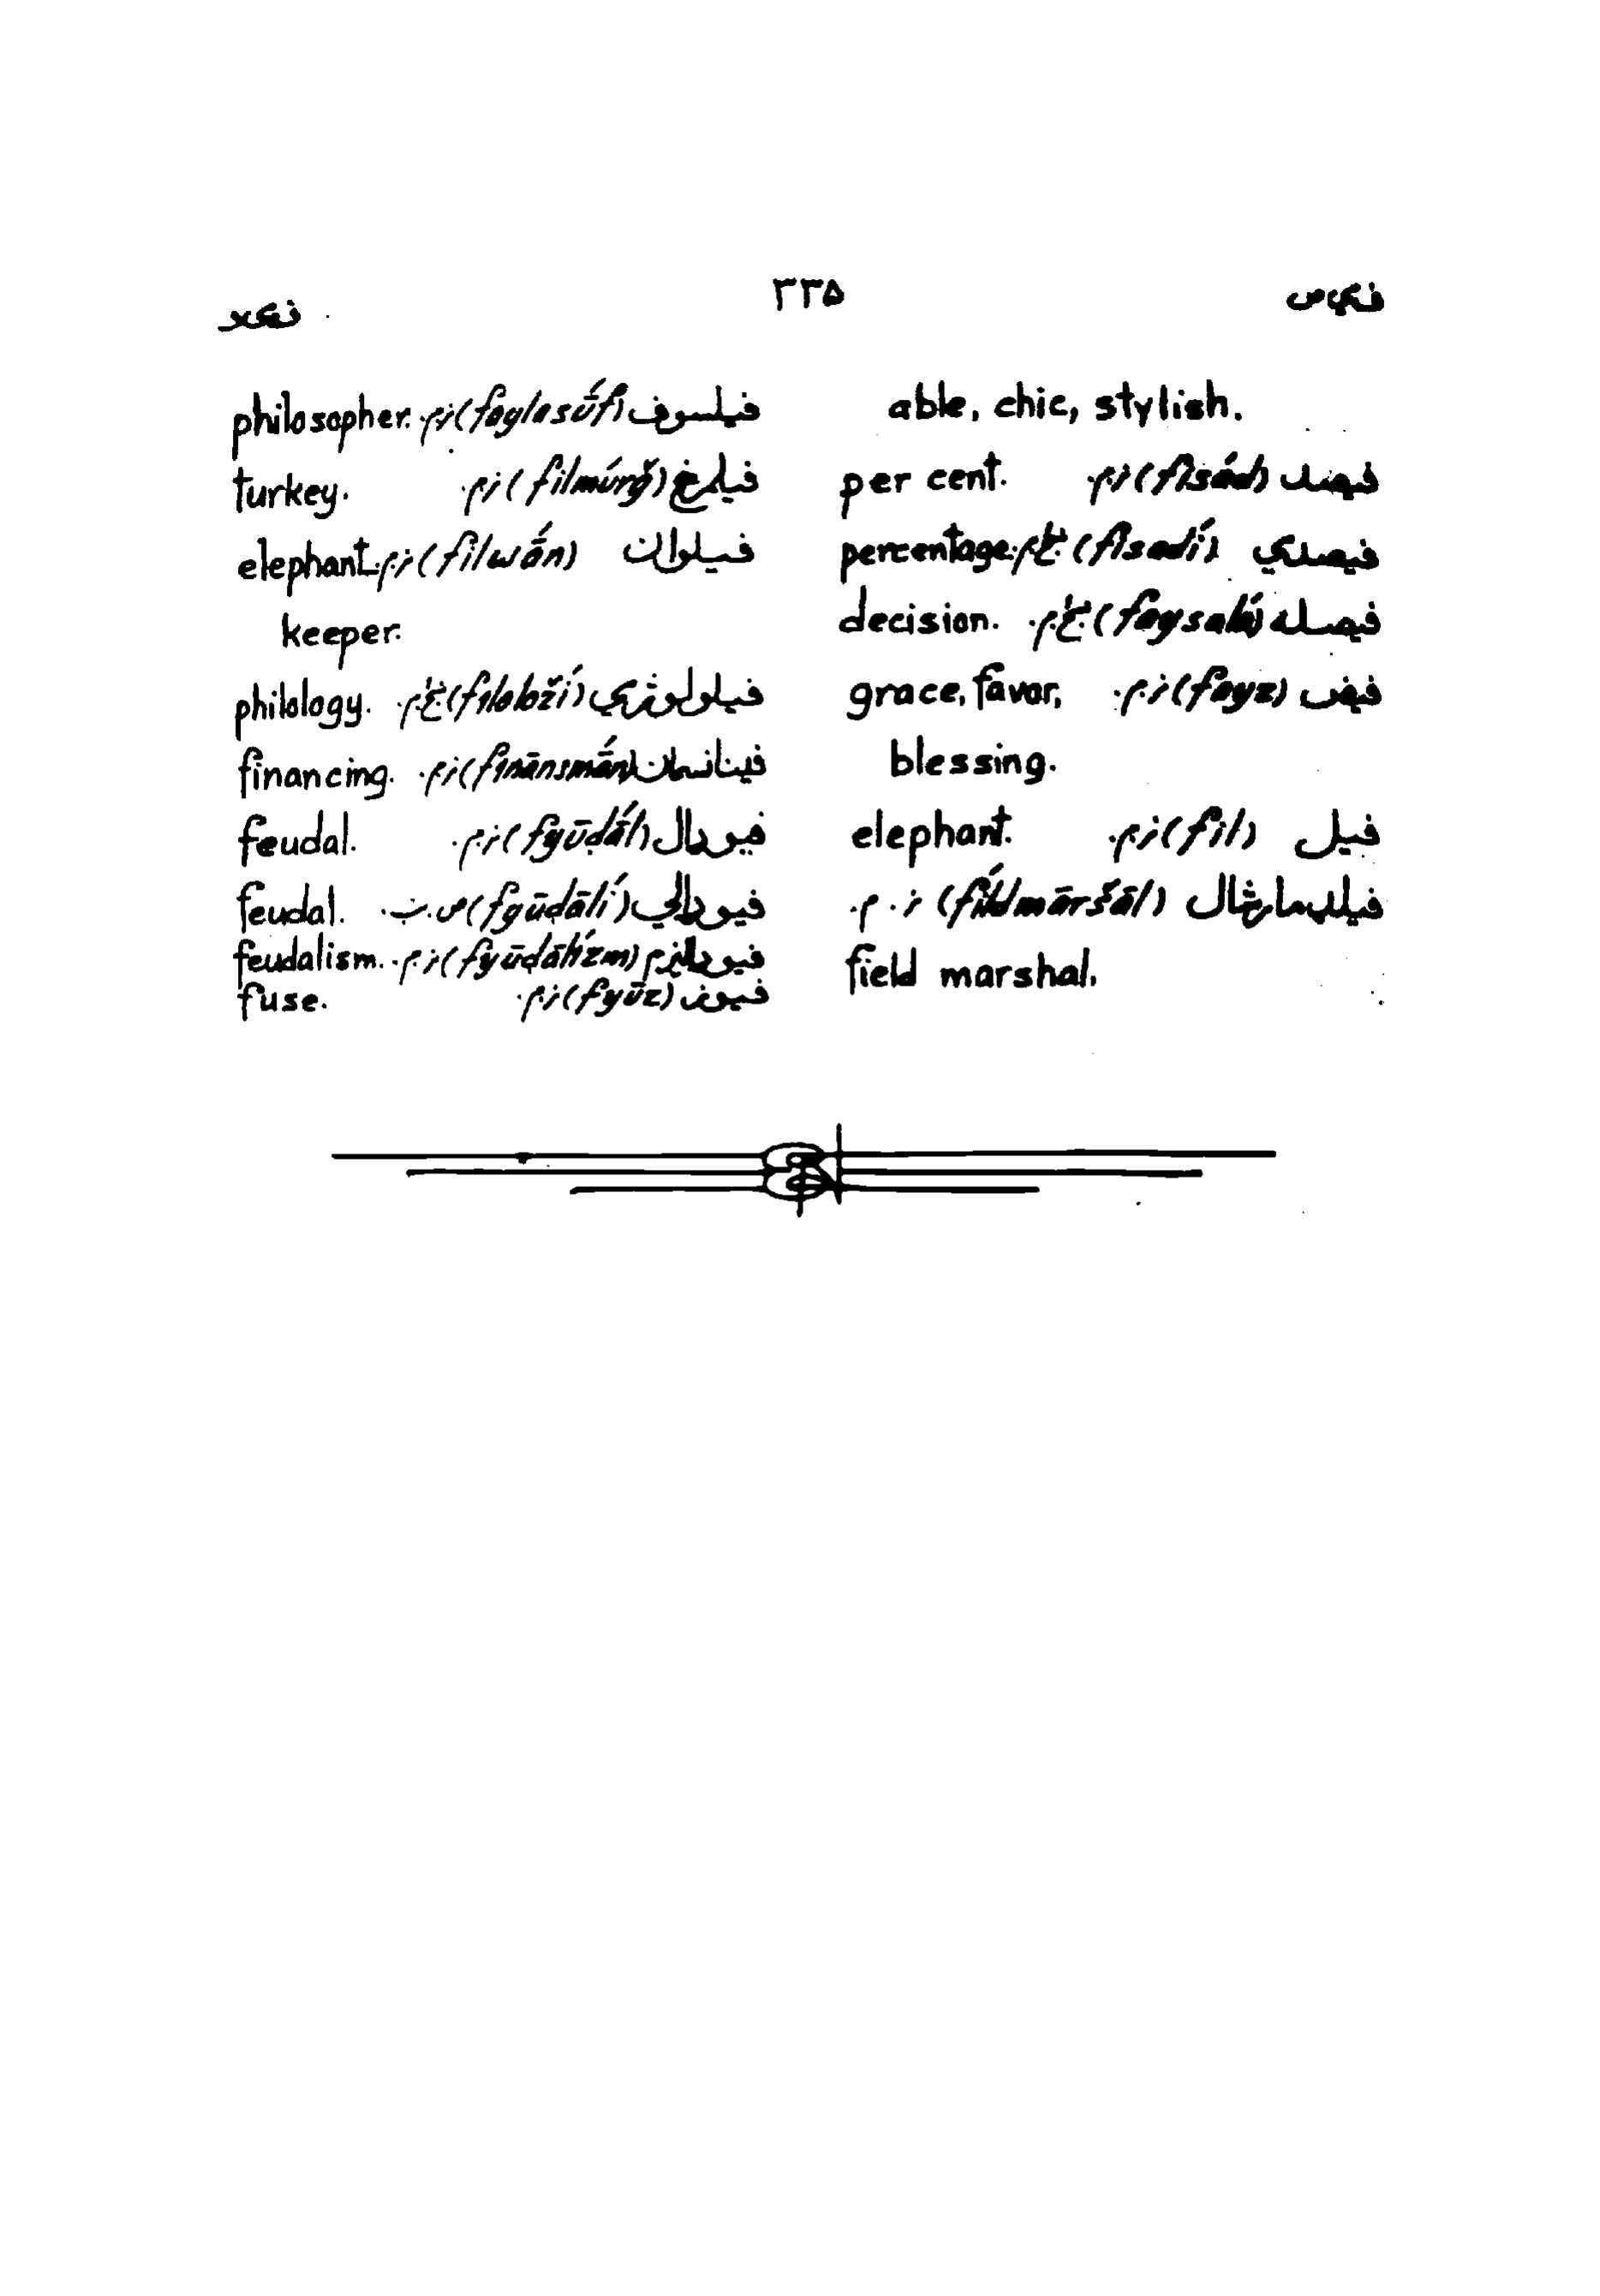 فيص ۳۳۵ فيو
able, chic, stylish.
فيصد (fisád) ن.م. per cent.
فيصدي (fisadí) ښځ.م. percentage.
فيصله (faysalá) ښځ.م. decision.
فيض (fayz) ن.م. grace, favor,
blessing.
فيل (fil) ن.م. elephant.
فيلډمارشال (fíldmāršāl) ن.م.
field marshal.
فيلسوف (faylasū́f) ن.م. philosopher.
فيلمرغ (filmúrğ) ن.م. turkey.
فيلوان (filwā́n) ن.م. elephant
keeper.
فيلولوژي (filoloží) ښځ.م. philology.
فينانسمان (finānsmā́n) ن.م. financing.
فيوډال (fyūḍā́l) ن.م. feudal.
فيوډالي (fyūḍālí) ص.ب. feudal.
فيوډاليزم (fyūḍālízm) ن.م. feudalism.
فيوز (fyūz) ن.م. fuse.